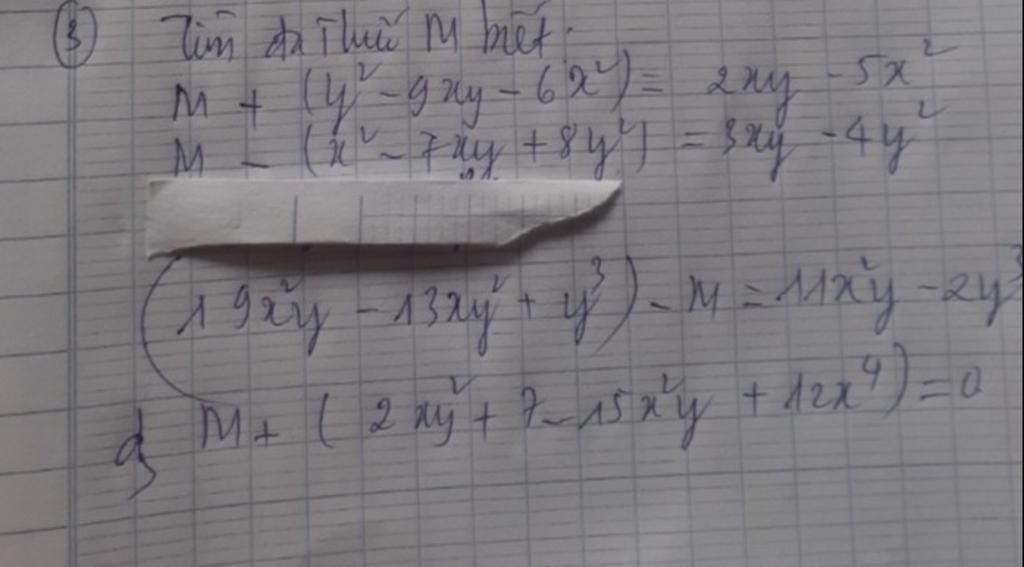 ③ Tìm đa thức M biết:
M + (y² - 9xy - 6x²) = 2xy - 5x²
M - (x² - 7xy + 8y²) = 3xy - 4y²
(19x²y - 13xy² + y³) - M = 11x²y - 2y³
d) M + (2xy² + 7 - 15x²y + 12x⁴) = 0